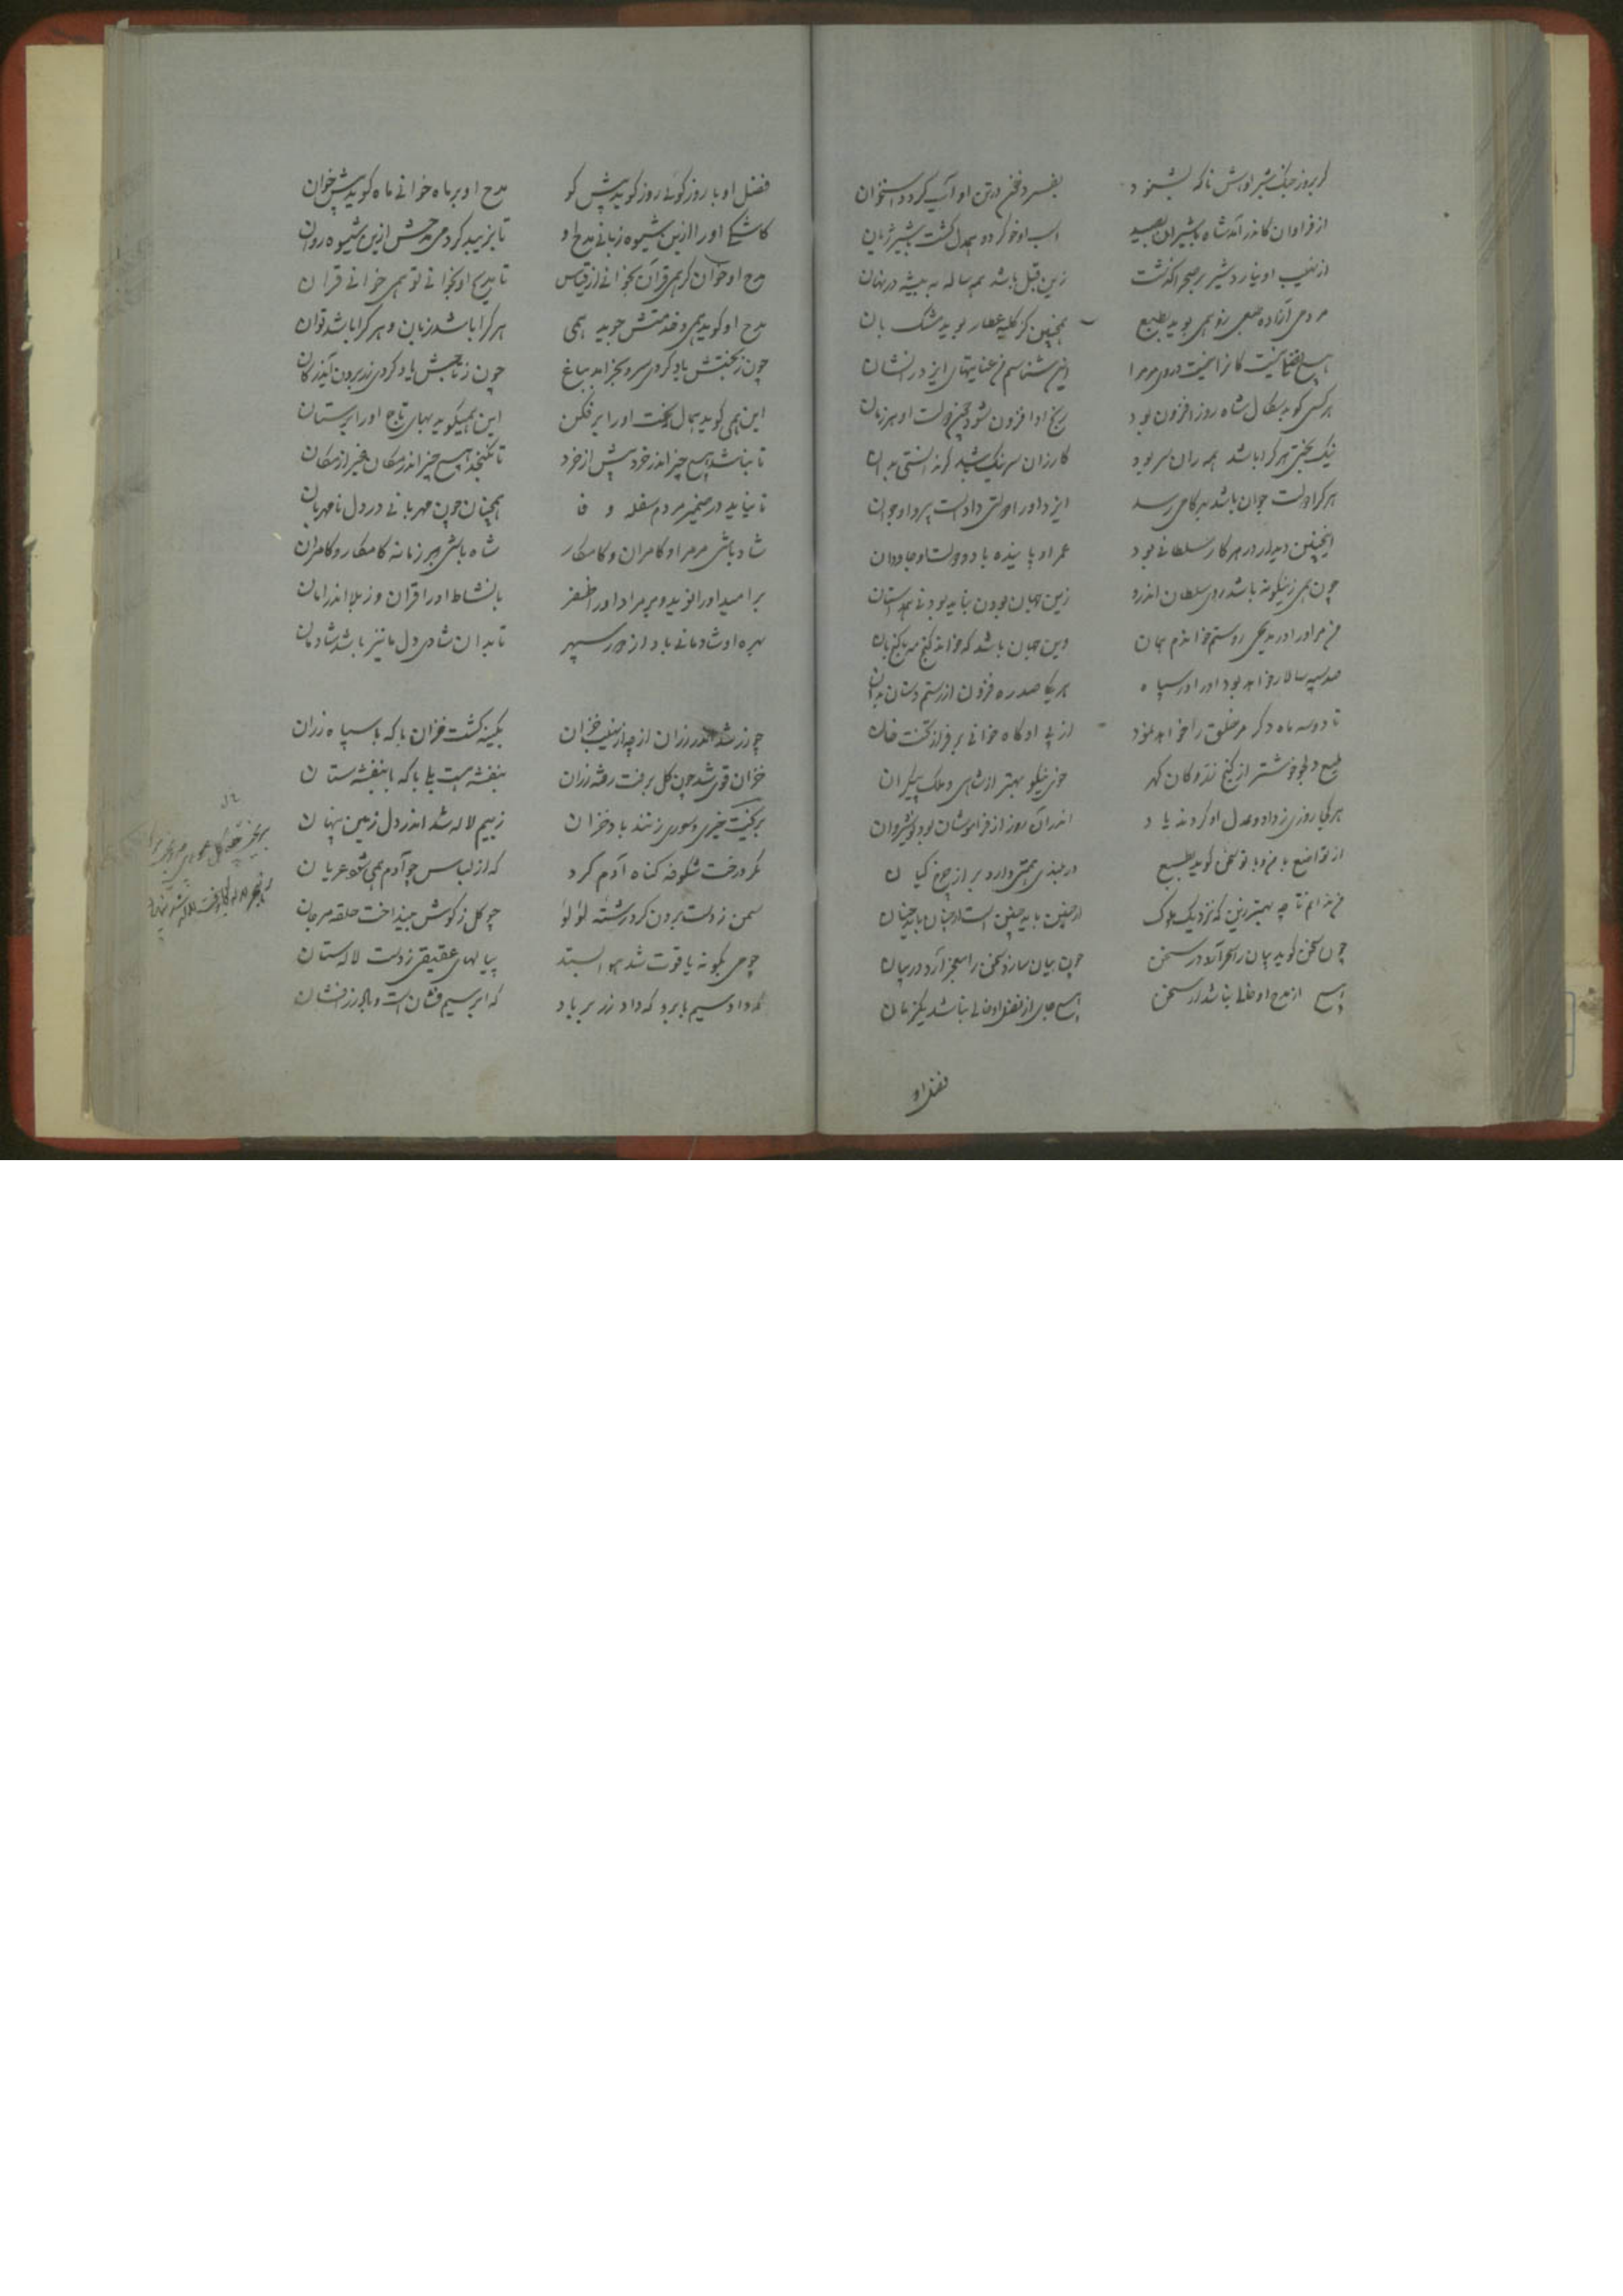 کر بروز جنک شیر اوش ناکه بشنود	بفسرد خون در تن او آب کردد استخوان
از فراوان کاندر آمد شاه با شیران بصید	اسب او خو کرد و همدل کشت با شیر ژیان
از نهیب او نیارد شیر بر صحرا کذشت	زین قبل باشد همه ساله به بیشه در نهان
مردمی آزاده طبعی زو همی بوید بطبع	همچنین کز کلبه عطار بوید مشک بان
این شناسم من عنایتهای ایزد را نشان
هر کسی کوید سکال شاه روز افزون بود	رنج او افزون شود چون دولت او هر زمان
نیک بختی هر کرا باشد همه زان سر بود
هر کرا دولت جوان باشد بهر کامی رسد	ایزد او را دولتی دادست پیر او جوان
اینچنین دیدار در هر کار سلطانی بود	عمر او پاینده باد و دولت او جاودان
چون همی زینکونه باشد رای سلطان اندرو	زین جهان بودن بباید بودنی همداستان
من مر او را در مدیحی روستم خواندم همان	وین چنان باشد که خوانده کنج نه با کنج بان
صد سپه سالار خواهد بود او را در سپاه	هر یکی صد ره فزون از رستم دستان بدان
تا دو سه ماه دکر مر خلق را خواهد نمود	از پی او کاه خوانی بر فراز تخت خان
طبع دلجو خوشتر از کنج نزد کان کهر	خوی نیکو بهتر از شاهی و ملک بیکران
هر کجا روزی ز داد و عدل او کردند یاد	اندر آن روز از فراموشان بود نوشیروان
از تواضع با من و با تو سخن کوید بطبع	در بلندی همتی دارد بر از چرخ کیان
من ندانم تا چه بهتر زین که نزدیک ملوک	از چنین باید چنین است ار چنان باید چنان
چون سخن کوید بیان را سحر آرد در سخن	چون بیان سازد سخن را معجز آرد در بیان
هیچ از مدح او خالی نباشد در سخن	هیچ جای از فضل او خالی نباشد یکزمان
فضل او
فضل او با روز کوئی روز کوید پیش کو	مدح او بر ماه خوانی ماه کوید پیش خوان
کاشکی او را ازین شیوه زبانی مدح او	تا بزیبد کردمی مدحش ازین شیوه روان
مدح او خوان کر همی قرآن بخوانی از قیاس	تا مدیح او نخوانی تو همی خوانی قران
مدح او کوید همی و خدمتش جوید همی	هر کرا باشد زبان و هر کرا باشد توان
چون ز بختش یاد کردی سرو بخرامد بباغ	چون ز تاجش یاد کردی زر برون آید ز کان
این همی کوید بمال تخت او را بر فکن	این همیکوید بهای تاج او را برستان
تا نباشد هیچ چیز اندر خرد پیش از خرد	تا نکنجد هیچ چیز اندر مکان غیر از مکان
تا نیاید در ضمیر مردم سفله وفا	همچنان چون مهربانی در دل نامهربان
شاد باش مر مر او کامران و کامکار	شاه باش مر زمانه کامکار و کامران
بر امید او را نوید و بر مراد او را ظفر	با نشاط او را قران و ز بلا اندر امان
بهره او شادمانی باد از دور سپهر	تا بدان شادی دل ما نیز باشد شادمان
چو زر شد اندر رزان از چه از نهیب خزان	بکینه کشت خزان با که با سپاه رزان
خزان قوی شد چون کل برفت رفت رزان	بنفشه هست بلی با که با بنفشه ستان
بریخت خیری و سوری زتند باد خزان	ز بیم لاله شد اندر دل زمین پنهان
مکر درخت شکوفه کناه آدم کرد	که از لباس چو آدم همی شود عریان
سمن ز دست برون کرد رشته لؤلؤ	چو کل ز کوش بینداخت حلقه مرجان
چو می بکونه یاقوت شد هوا بستد	پیالهای عقیقی ز دست لاله ستان
که داد سیم بابر و که داد زر بر باد	که ابر سیم فشانست و باد زر افشان